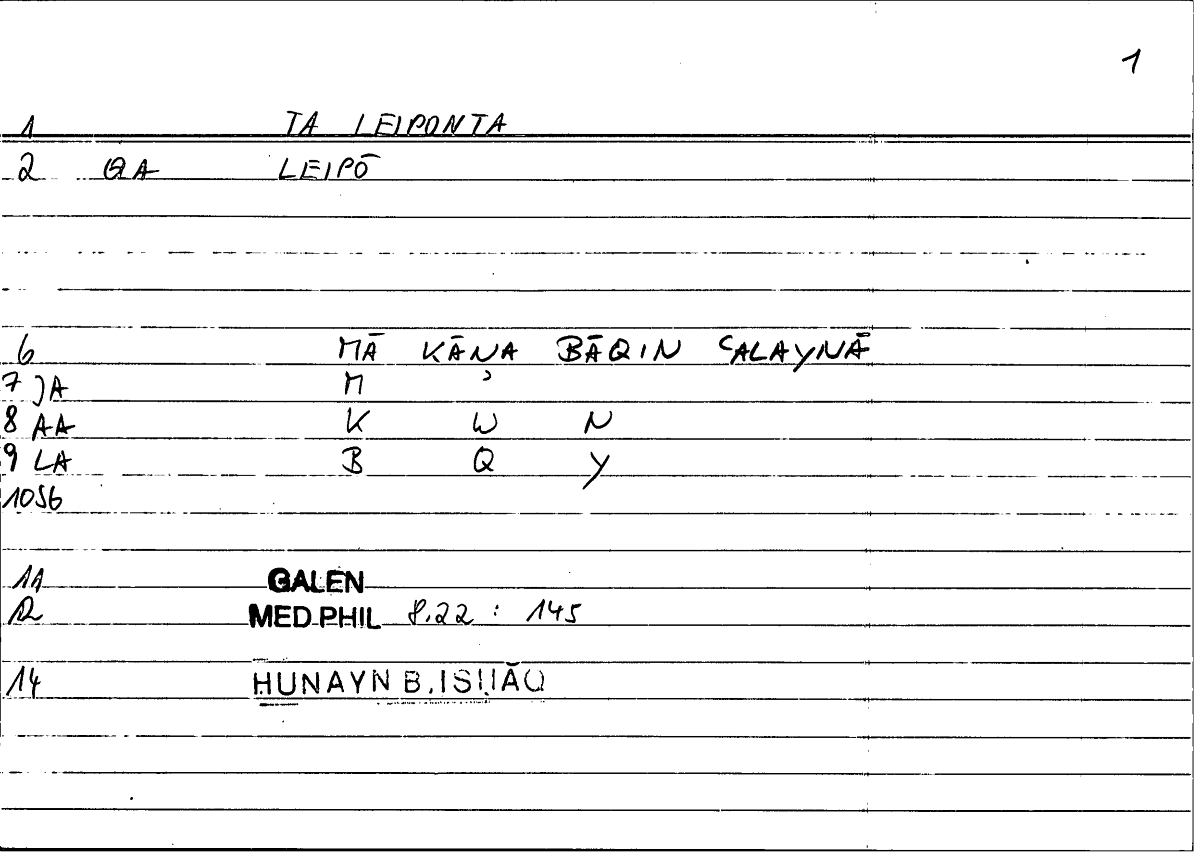 1
1 TA LEIPONTA
2 QA LEIPŌ
6 MĀ KĀNA BĀQIN ʿALAYNĀ
7 JA M ʾ
8 AA K W N
9 LA B Q Y
1056
11 GALEN
12 MED.PHIL 8.22 : 145
14 ḤUNAYN B. ISḤĀQ